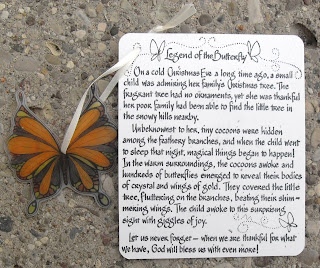 Legend of the Butterfly
On a cold Christmas Eve a long time ago, a small
child was admiring her family's Christmas tree. The
fragrant tree had no ornaments, yet she was thankful
her poor family had been able to find the little tree in
the snowy hills nearby.
Unbeknownst to her, tiny cocoons were hidden
among the feathery branches, and when the child went
to sleep that night, magical things began to happen!
In the warm surroundings, the cocoons awoke and
hundreds of butterflies emerged to reveal their bodies
of crystal and wings of gold. They covered the little
tree, fluttering on the branches, beating their shim-
mering wings. The child awoke to this surprising
sight with giggles of joy.
Let us never forget — when we are thankful for what
we have, God will bless us with even more!